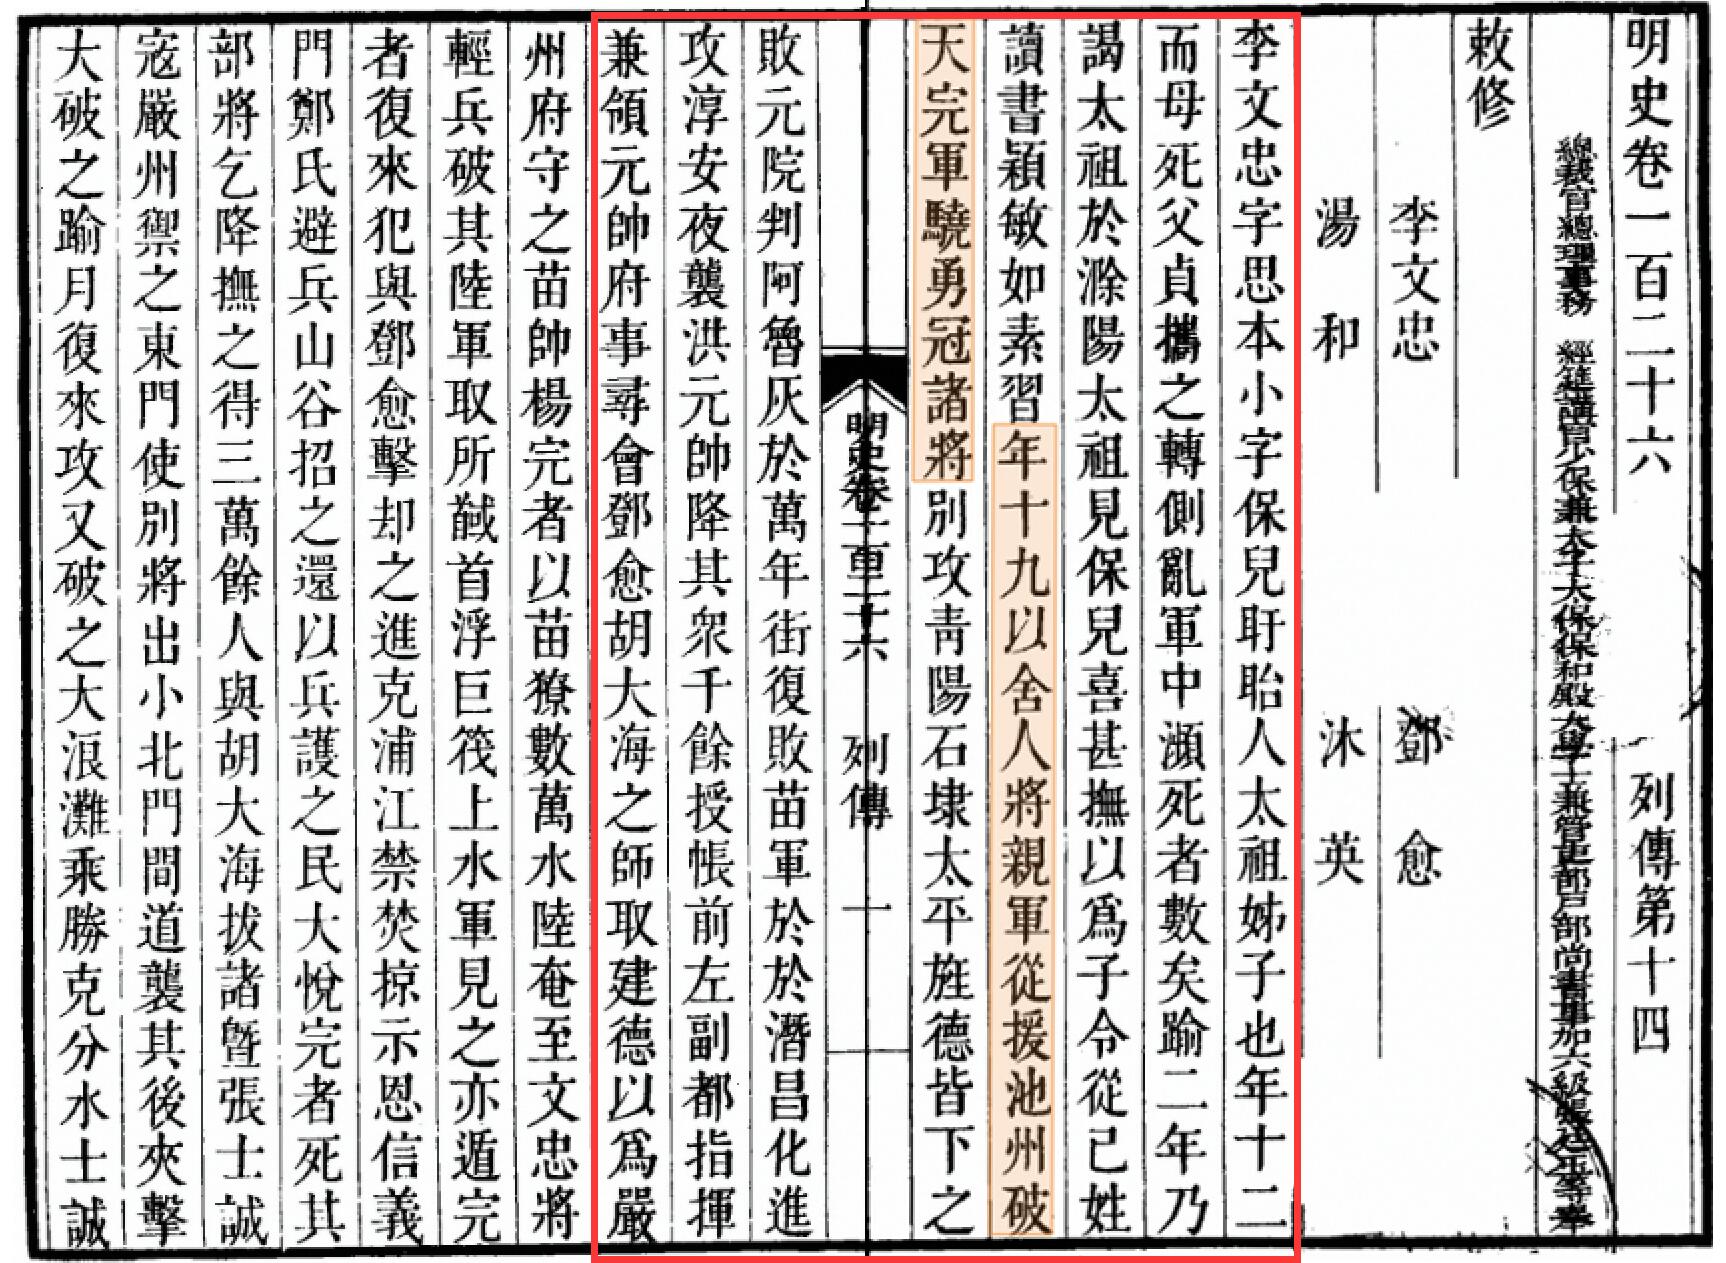 明史卷一百二十六　列傳第十四
總裁官總理事務　經筵講官少保兼太子太保保和殿大學士兼管吏部戶部尚書事加六級張廷玉等奉
敕修
李文忠　鄧愈
湯和　沐英
李文忠字思本小字保兒盱眙人太祖姊子也年十二
而母死父貞攜之轉側亂軍中瀕死者數矣踰二年乃
謁太祖於滁陽太祖見保兒喜甚撫以爲子令從己姓
讀書穎敏如素習年十九以舍人將親軍從援池州破
天完軍驍勇冠諸將別攻青陽石埭太平旌德皆下之
明史卷一百二十六　列傳　一
敗元院判阿魯灰於萬年街復敗苗軍於於潛昌化進
攻淳安夜襲洪元帥降其衆千餘授帳前左副都指揮
兼領元帥府事尋會鄧愈胡大海之師取建德以爲嚴
州府守之苗帥楊完者以苗獠數萬水陸奄至文忠將
輕兵破其陸軍取所馘首浮巨筏上水軍見之亦遁完
者復來犯與鄧愈擊却之進克浦江禁焚掠示恩信義
門鄭氏避兵山谷招之還以兵護之民大悅完者死其
部將乞降撫之得三萬餘人與胡大海拔諸暨張士誠
寇嚴州禦之東門使別將出小北門間道襲其後夾擊
大破之踰月復來攻又破之大浪灘乘勝克分水士誠